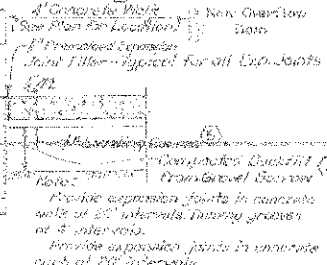 4" Concrete Walk
See Plan For Location
New Overflow
Dam
Premolded Expansion
Joint Filler - Typical for all Exp. Joints
Compacted Backfill
From Gravel Borrow
Note:
Provide expansion joints in concrete
walk at 20' intervals. Dummy grooves
at 4' intervals.
Provide expansion joints in concrete
at 20' intervals